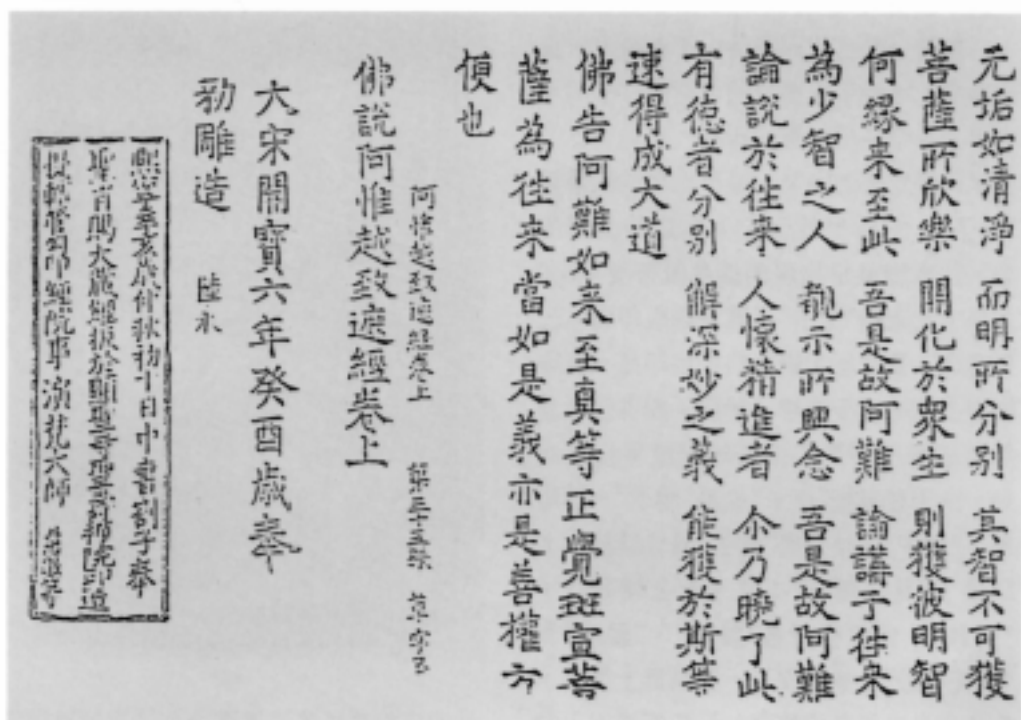 无垢如清淨 而明所分别 其智不可獲
菩薩所欣樂 開化於衆生 則獲彼明智
何緣来至此 吾是故阿難 論講于徃来
為少智之人 觀示所興念 吾是故阿難
論說於徃来 人懷精進者 尒乃曉了此
有徳者分别 解深妙之義 能獲於斯等
速得成大道
佛告阿難如来至真等正覺班宣菩
薩為徃来當如是義亦是善權方
便也
阿惟越致遮經卷上 第三十五張 草字号
佛說阿惟越致遮經卷上
大宋開寶六年癸酉歳奉
勑雕造 陸永
熙寧辛亥歳仲秋初十日中書劄子奉
聖旨賜大藏經板於顯聖寺聖壽禪院印造
提轄管勾印經院事演梵大師